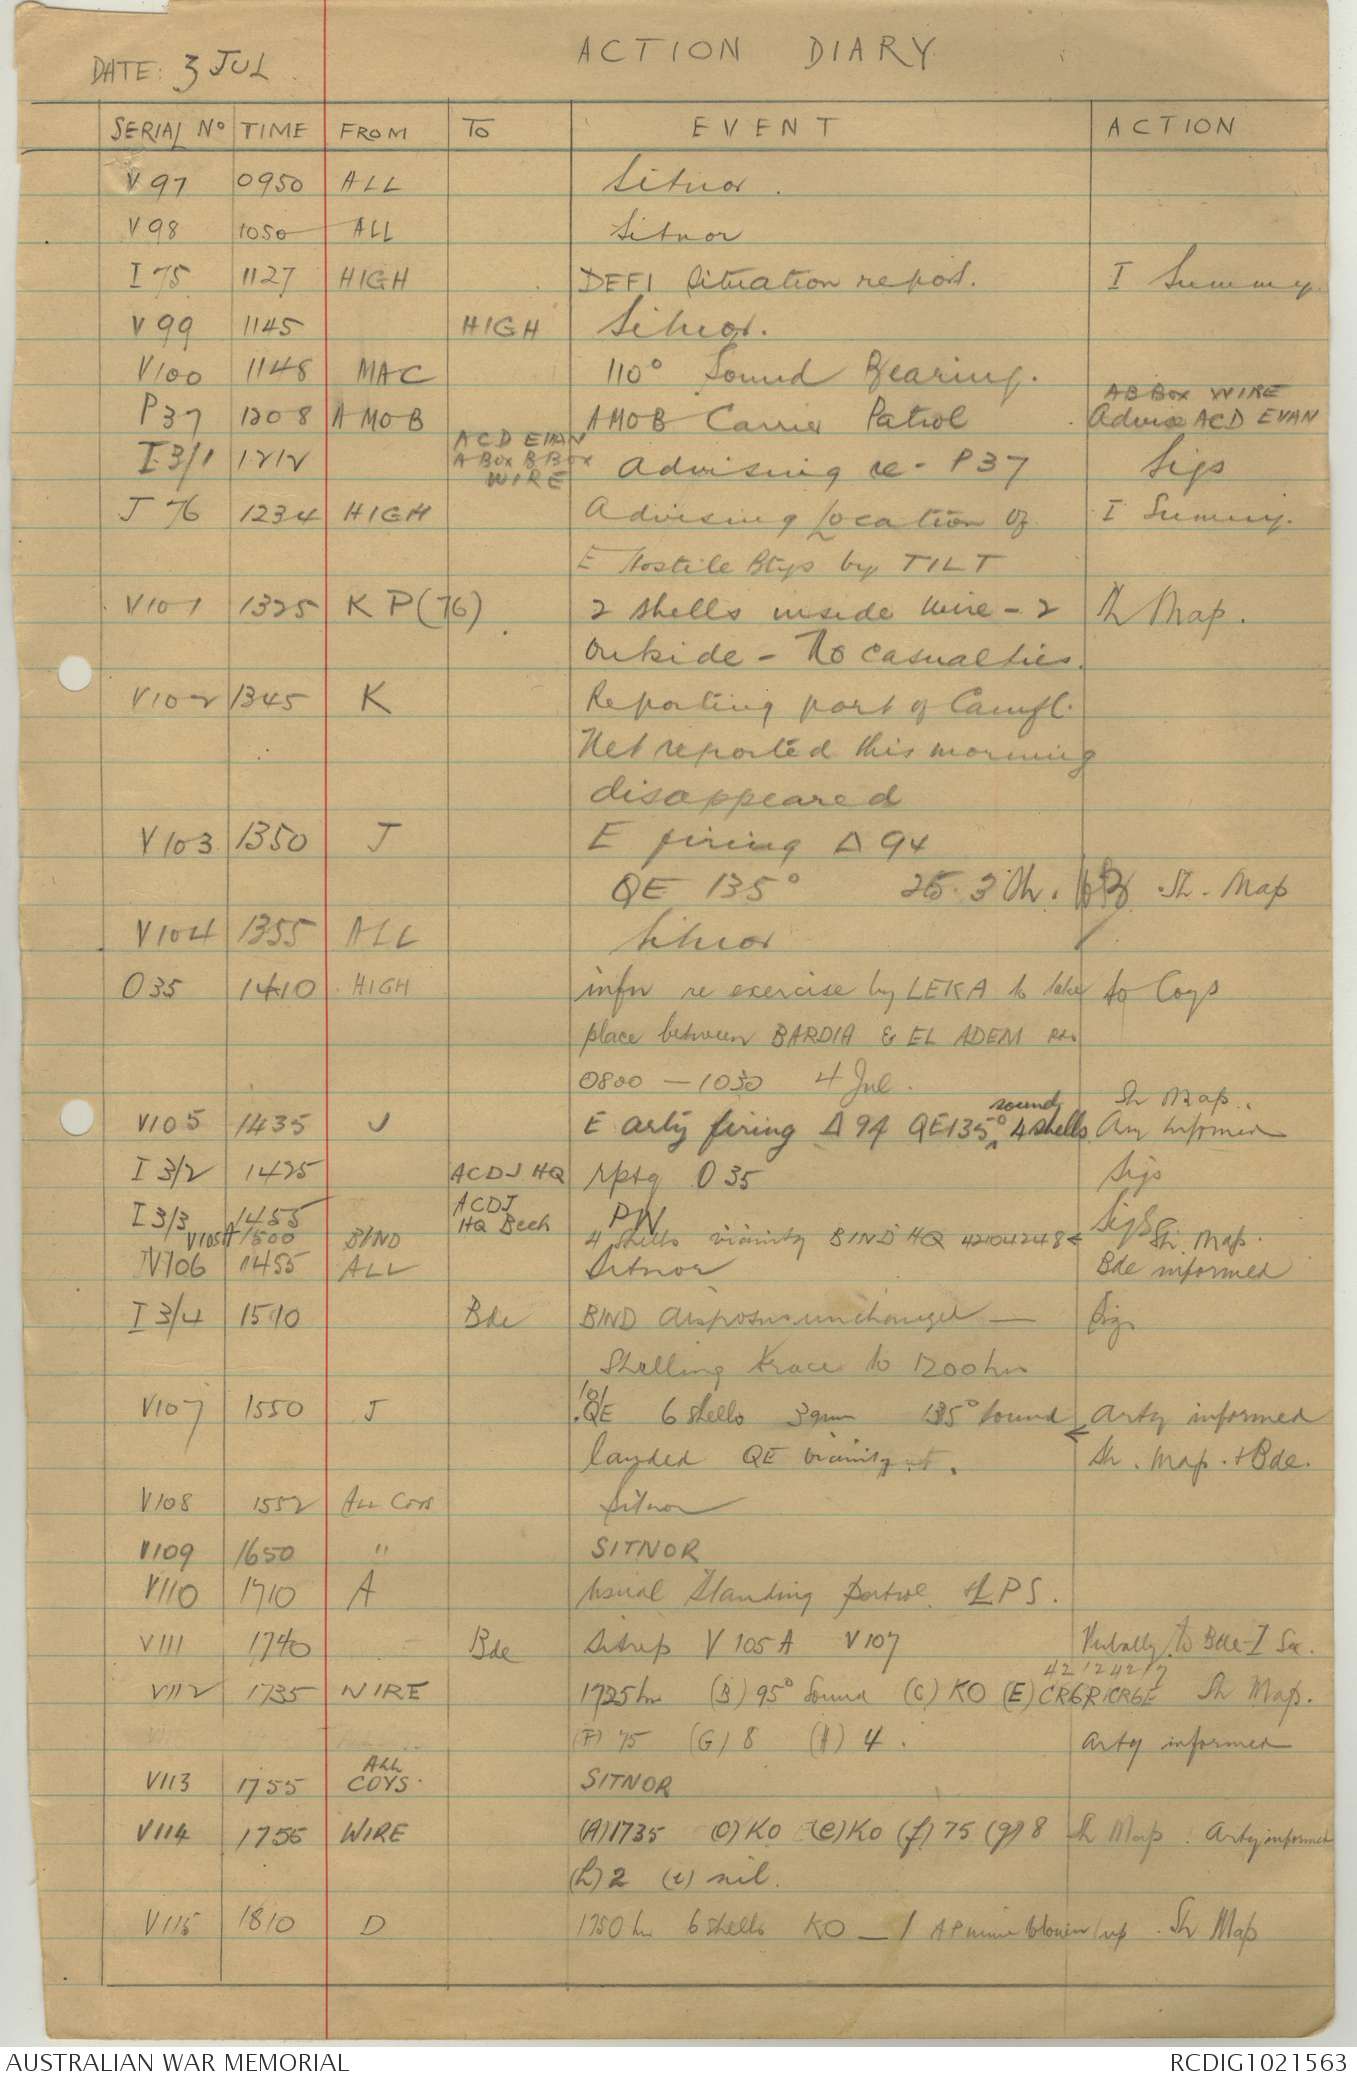 DATE: 3 JUL
ACTION DIARY
SERIAL No TIME FROM TO EVENT ACTION
V97 0950 ALL Sitnor.
V98 1050 ALL Sitnor
I 75 1127 HIGH DEFI Situation report. I Summy
V99 1145 HIGH Sitnor.
V100 1148 MAC 110° Sound Bearing.
AB Box WIRE
P37 1208 AMOB AMOB Carrier Patrol Advise ACD EVAN
ACD EVAN
A Box B Box
WIRE
I 3/1 1212 Advising re - P37 Sigs
J 76 1234 HIGH Advising Location of I Summy.
E Hostile Btys by TILT
V101 1325 K P(76) 2 shells inside wire - 2 Sh Map.
outside - No casualties.
V102 1345 K Reporting part of Camfl.
Net reported this morning
disappeared
V103 1350 J E firing Δ 94
QE 135° Sh. Map
V104 1355 ALL Sitnor
O35 1410 HIGH infn re exercise by LEKA to take to Coys
place between BARDIA & EL ADEM Rds
0800 - 1030 4 Jul.
Sh Map.
V105 1435 J E arty firing Δ 94 QE135° sound 4 shells Arty informed
I 3/2 1425 ACDJ HQ rptg O35 Sigs
I 3/3 1455 ACDJ HQ Bech PW Sigs
V105A 1500 BIND 4 shells vicinity BIND HQ 42104248 Sh. Map.
V106 1455 ALL Sitnor Bde informed
I 3/4 1510 Bde BIND disposns unchanged — Sigs
Shelling trace to 1200 hrs
V107 1550 J QE 6 shells 3 gun 135° sound Arty informed
landed QE vicinity. Sh. Map. + Bde.
V108 1552 ALL COYS Sitnor
V109 1650 " SITNOR
V110 1710 A Usual Standing patrol. LPS.
V111 1740 Bde Sitrep V105A V107 Verbally to Bde-I Sec.
42124217
V112 1735 WIRE 1725 hr (B) 95° Sound (C) KO (E) CR6R1CR6E Sh Map.
(F) 75 (G) 8 (H) 4. Arty informed
V113 1755 ALL COYS. SITNOR
V114 1756 WIRE (A) 1735 (C) KO (E) KO (f) 75 (g) 8 Sh Map. Arty informed
(h) 2 (i) nil.
V115 1810 D 1750 hr 6 shells KO — 1 AP mine blown up. Sh Map
AUSTRALIAN WAR MEMORIAL RCDIG1021563